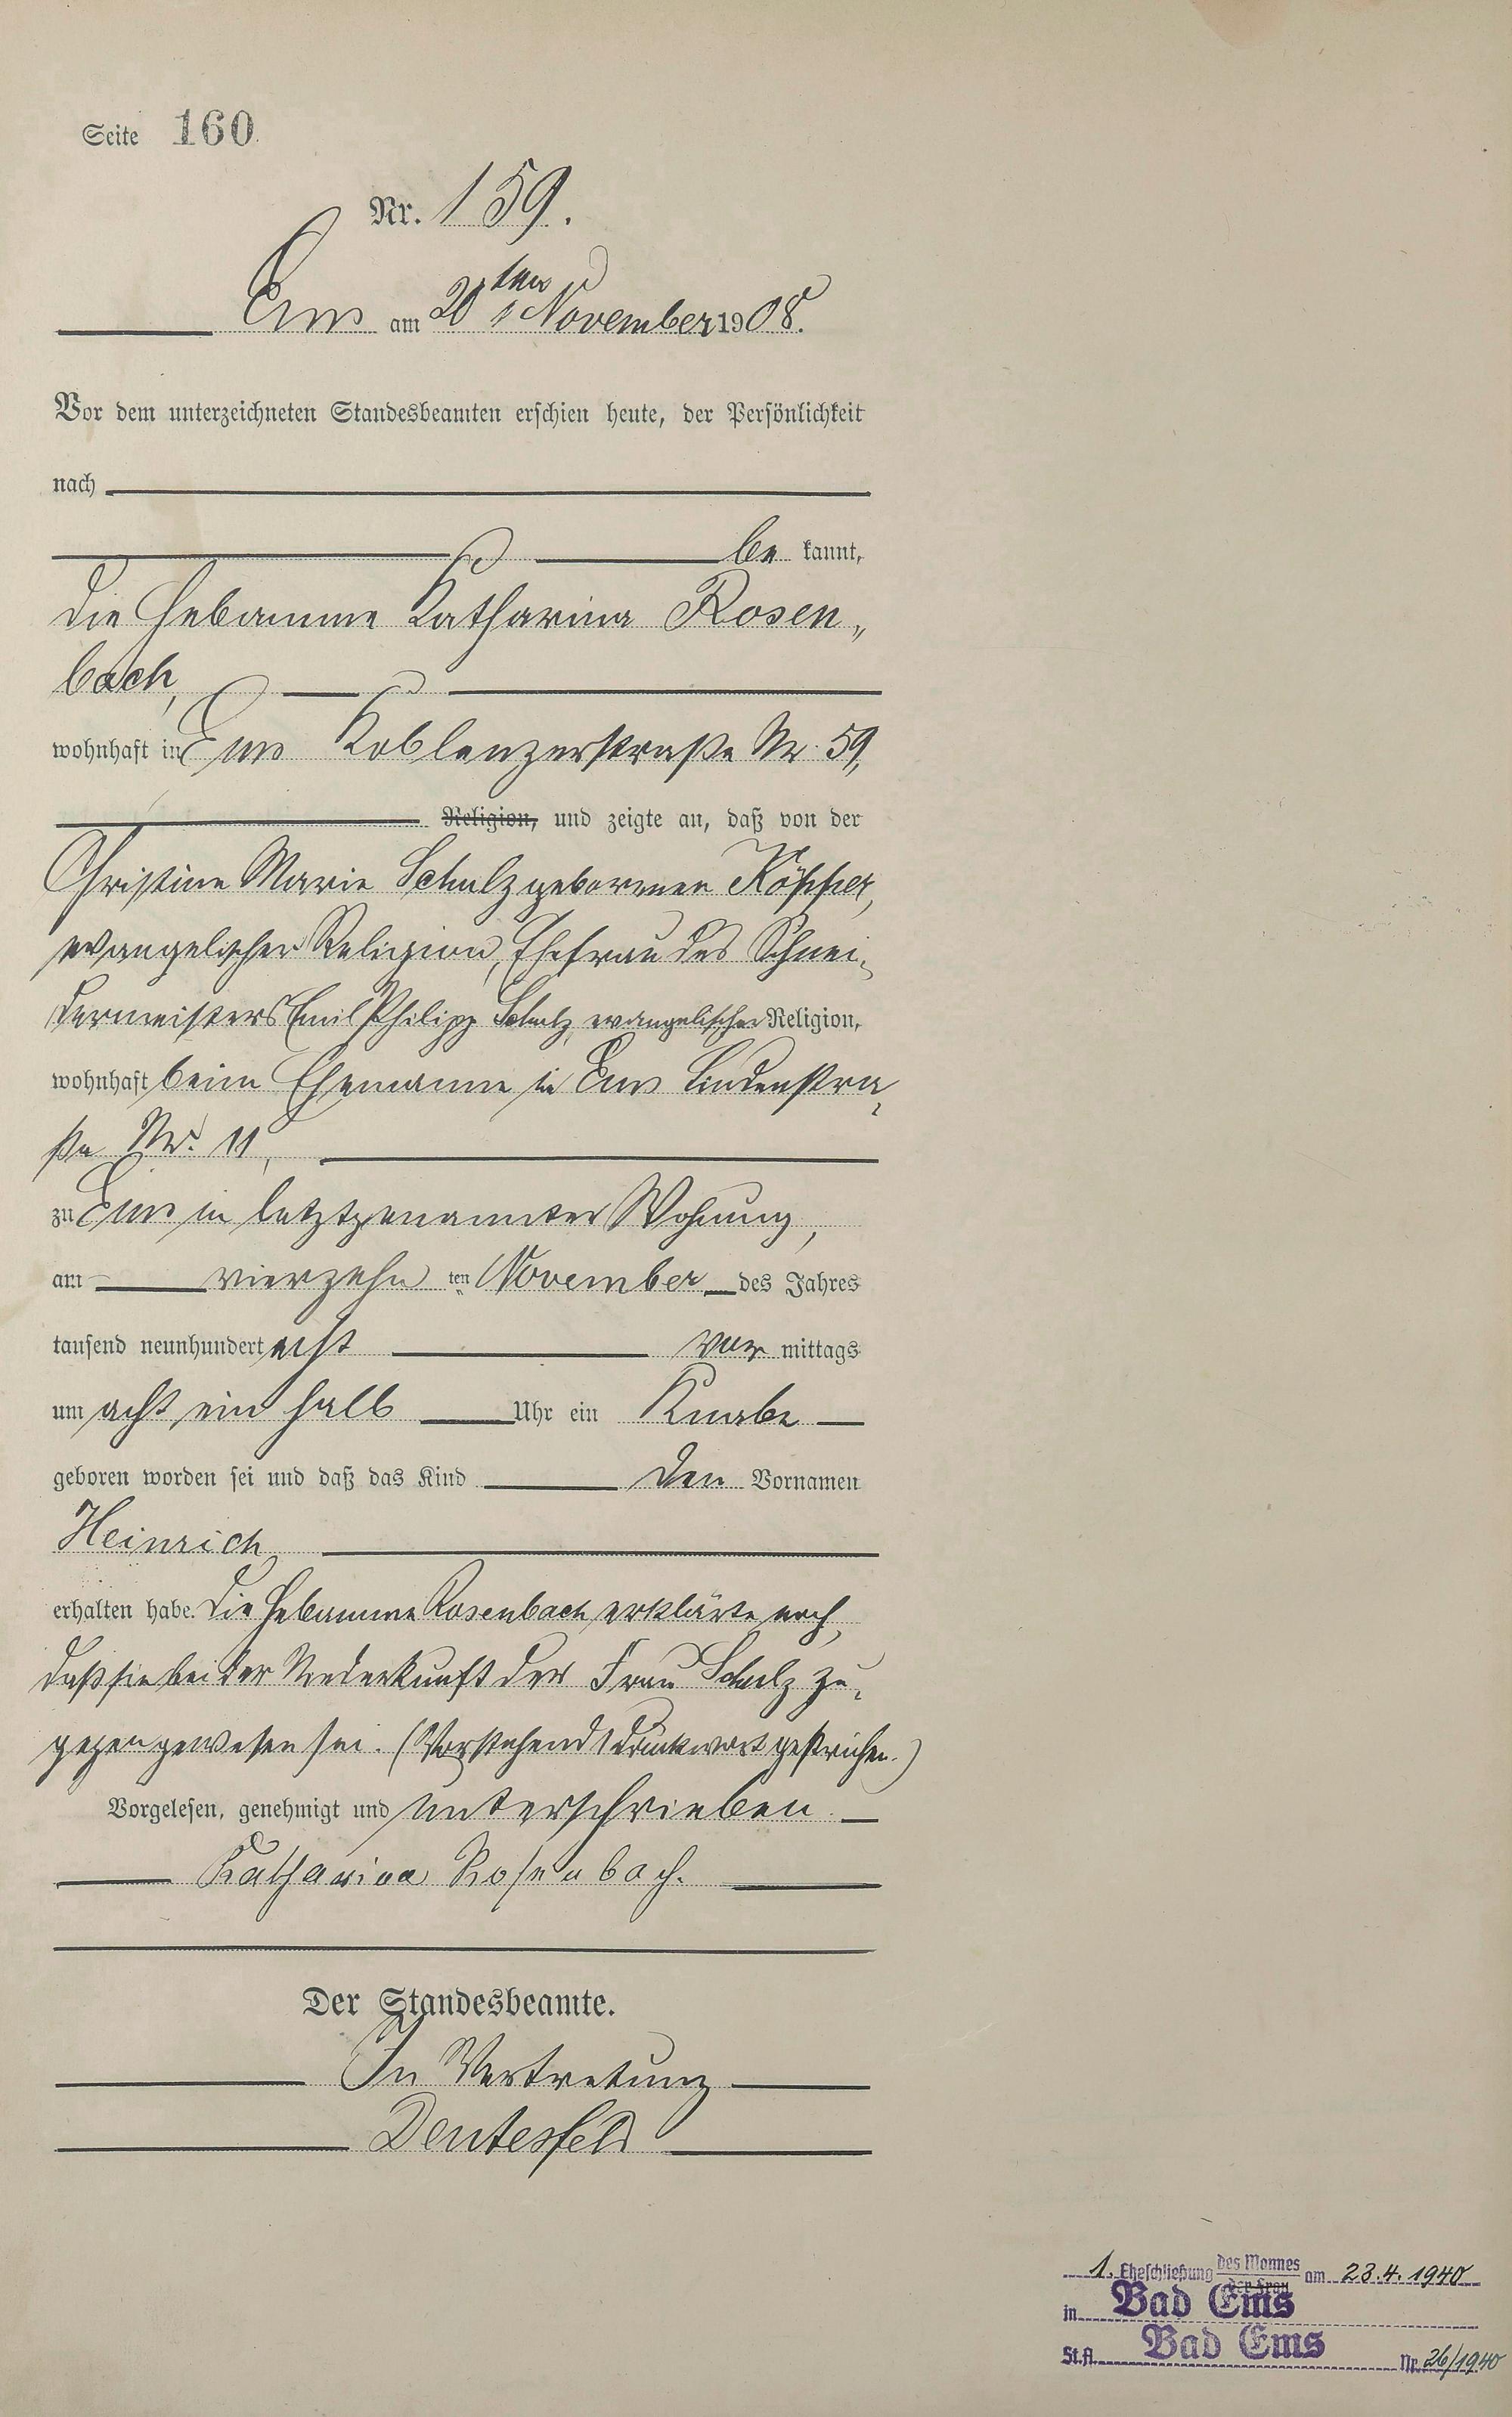 Seite 160.
Nr. 159.
Ems am 20ten November 1908.
Vor dem unterzeichneten Standesbeamten erschien heute, der Persönlichkeit
nach
be kannt,
die Hebamme Katharina Rosen„
bach,
wohnhaft in Ems Koblenzerstraße Nr. 59,
Religion, und zeigte an, daß von der
Christine Marie Schulz geborenen
evangelischer Religion, Ehefrau des Schnei„
dermeisters Emil Philipp Schulz, evangelischer Religion,
wohnhaft beim Ehemanne in Ems Lindenstra„
ße Nr. 11,
zu Ems in letztgenannter Wohnung,
am vierzehn ten November des Jahres
tausend neunhundert acht vor mittags
um acht ein halb Uhr ein Knabe
geboren worden sei und daß das Kind den Vornamen
Heinrich
erhalten habe. Die Hebamme Rosenbach erklärte noch,
daß sie bei der Niederkunft der Frau Schulz zu„
gegen gewesen sei. (Vorstehend 1 Druckwort gestrichen.)
Vorgelesen, genehmigt und unterschrieben.
Katharina Rosenbach.
Der Standesbeamte.
In Vertretung
1. Eheschließung des Mannes am 23.4.1940
der Frau
in Bad Ems
St.A. Bad Ems Nr. 26/1940